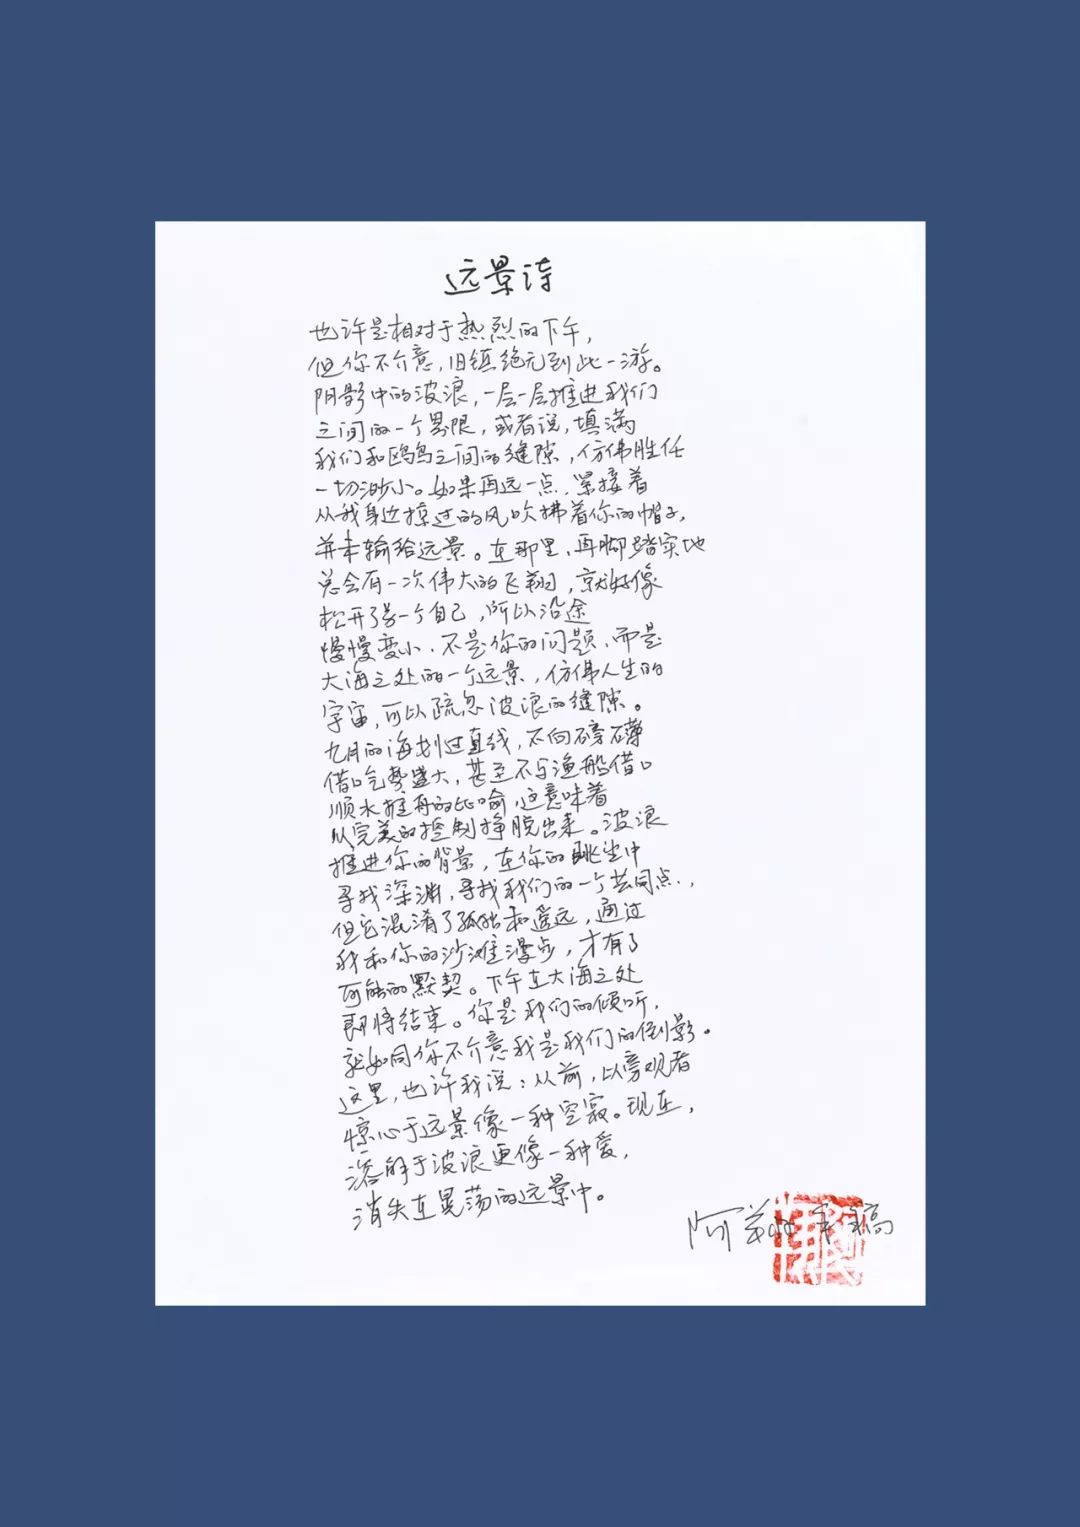 远景诗
也许是相对于热烈的下午，
但你不介意，旧镇绝无到此一游。
阴影中的波浪，一层一层推进我们
之间的一个界限，或者说，填满
我们和鸥鸟之间的缝隙，仿佛胜任
一切渺小。如果再远一点，紧接着
从我身边掠过的风吹拂着你的帽子，
并未输给远景。在那里，再脚踏实地
总会有一次伟大的飞翔，就好像
松开了另一个自己，所以沿途
慢慢变小，不是你的问题，而是
大海之处的一个远景，仿佛人生的
宇宙，可以疏忽波浪的缝隙。
九月的海划过直线，不向磅礴
借口气势盛大，甚至不与渔船借口
顺水推舟的比喻，这意味着
从完美的控制挣脱出来。波浪
推进你的背景，在你的眺望中
寻找深渊，寻找我们的一个共同点，
但它混淆了孤独和遥远，通过
我和你的沙滩漫步，才有了
可能的默契。下午在大海之处
即将结束。你是我们的倾听，
就如同你不介意我是我们的倒影。
这里，也许我说：从前，以旁观者
惊心于远景像一种空寂。现在，
溶解于波浪更像一种爱，
消失在晃荡的远景中。
阿 手稿